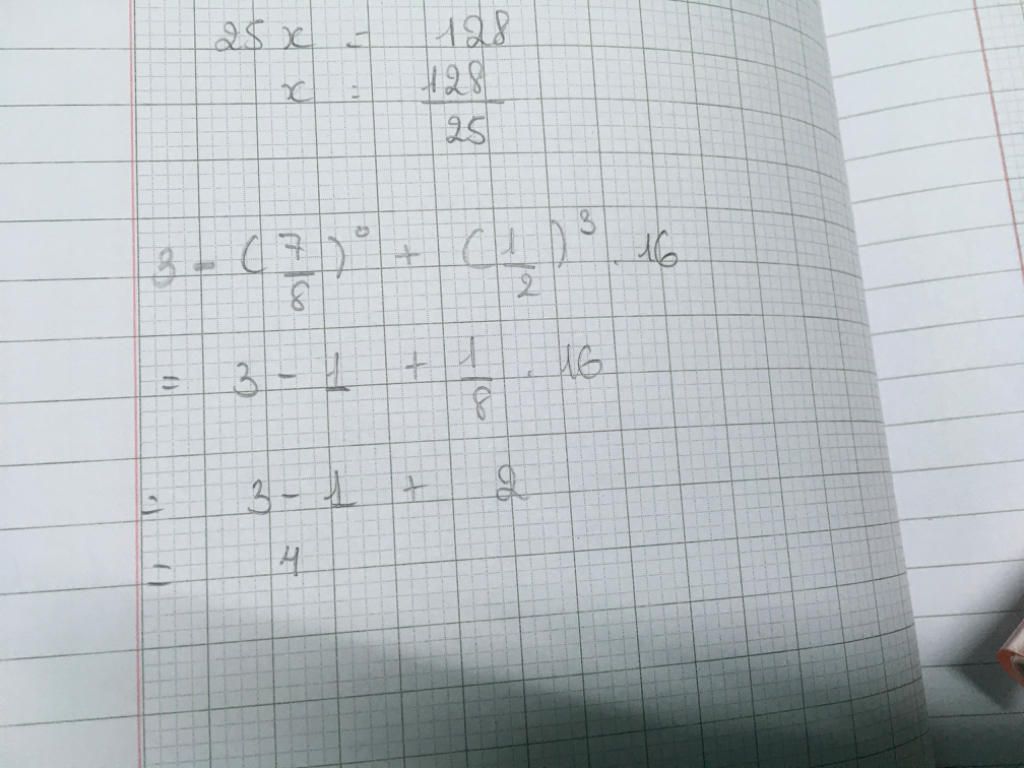 25x = 128
x = 128/25
3 - (7/8)^0 + (1/2)^3 . 16
= 3 - 1 + 1/8 . 16
= 3 - 1 + 2
= 4